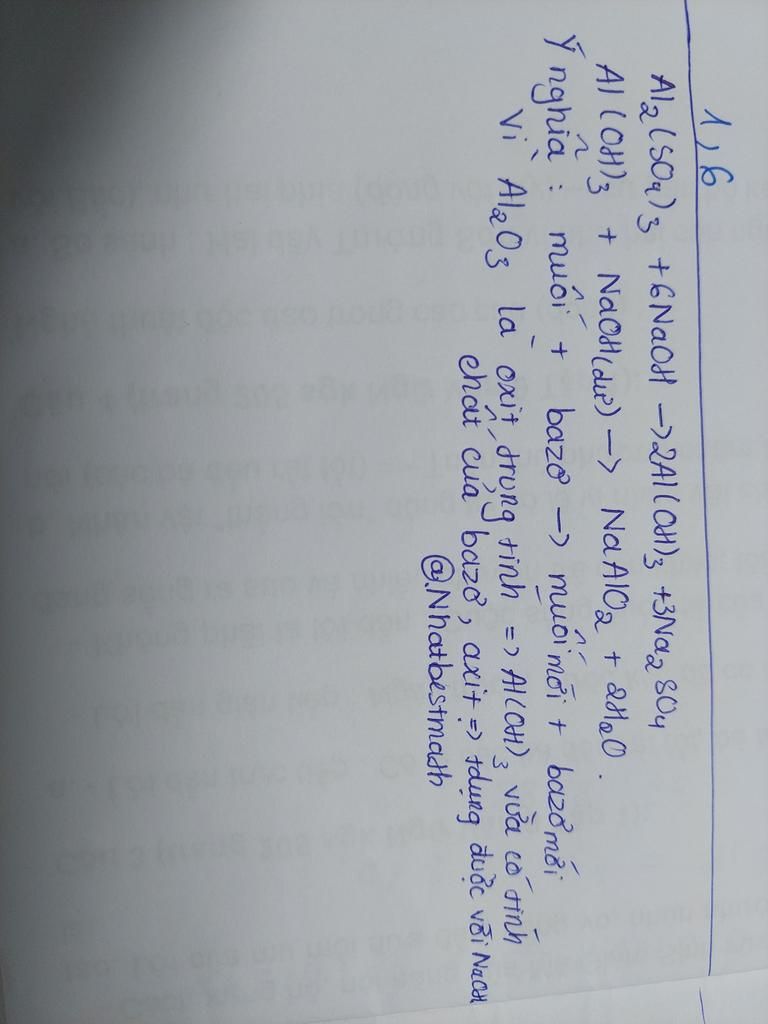 1,6
Al2(SO4)3 + 6NaOH → 2Al(OH)3 + 3Na2SO4
Al(OH)3 + NaOH(dư) → NaAlO2 + 2H2O.
Ý nghĩa: muối + bazơ → muối mới + bazơ mới
Vì Al2O3 là oxit trung tính => Al(OH)3 vừa có tính
chất của bazơ, axit => tdụng được với NaOH
@Nhatbestmath